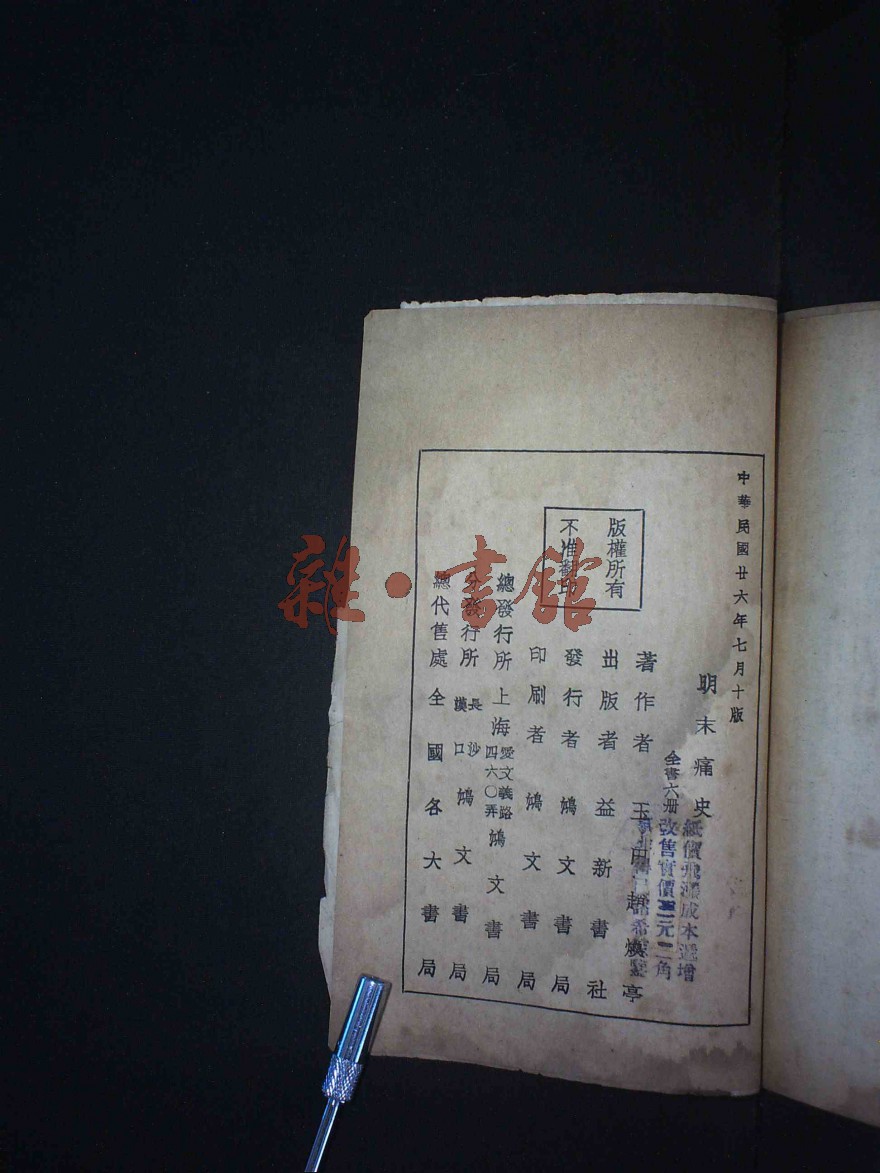 中華民國廿六年七月十版
明末痛史
全書六册
紙價飛漲成本遞增
改售實價 元二角
版權所有
不准翻印
著作者 玉田趙煥亭
出版者 益新書社
發行者 鴻文書局
印刷者 鴻文書局
總發行所 上海愛文義路四六〇弄 鴻文書局
分發行所 長沙 漢口 鴻文書局
總代售處 全國各大書局
雜·書館